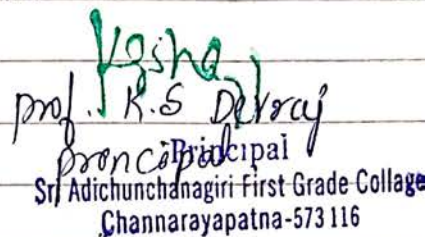 prof. K.S Devraj
proncipal Principal
Sri Adichunchanagiri First Grade Collage
Channarayapatna-573 116